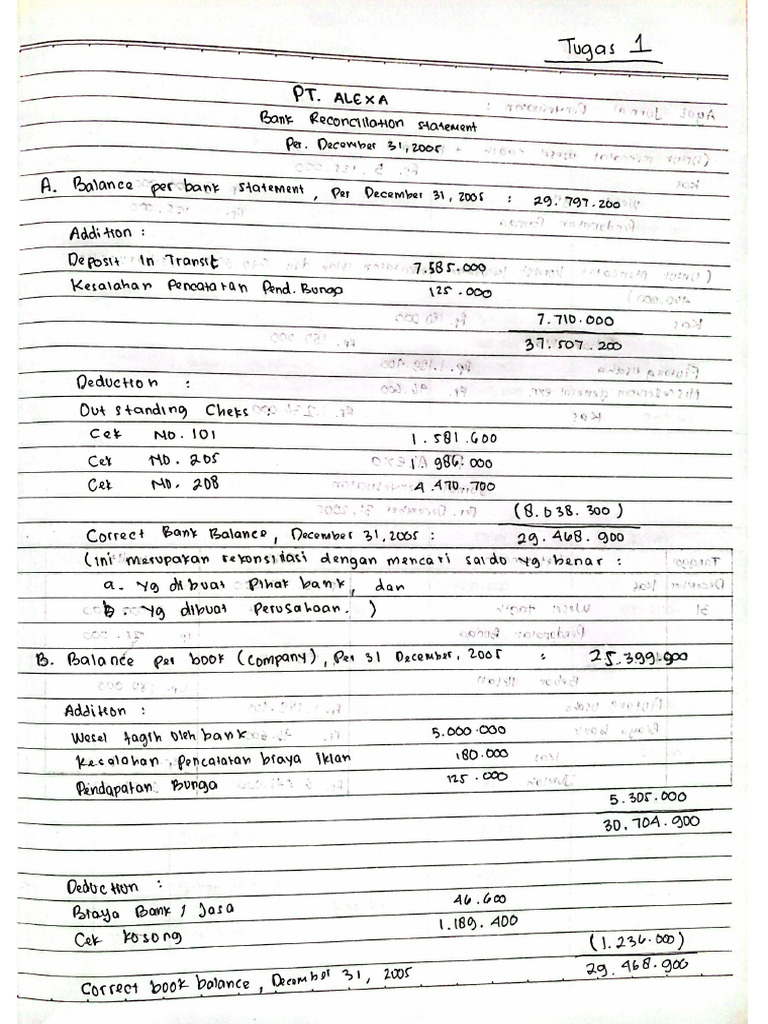 Tugas 1
PT. ALEXA
Bank Reconciliation statement
Per. December 31, 2005
A. Balance per bank statement, Per December 31, 2005 : 29.797.200
Addition :
Deposit In Transit 7.585.000
Kesalahan Pencatatan Pend. Bunga 125.000
7.710.000
37.507.200
Deduction :
Out standing Cheks :
Cek NO. 101 1.581.600
Cek NO. 205 1.986.000
Cek NO. 208 4.470.700
(8.038.300)
Correct Bank Balance, December 31, 2005 : 29.468.900
(Ini merupakan rekonsiliasi dengan mencari saldo yg benar :
a. yg dibuat Pihak bank, dan
b. yg dibuat Perusahaan.)
B. Balance per book (company), Per 31 December, 2005 : 25.399.900
Addition :
Wesel tagih oleh bank 5.000.000
Kesalahan Pencatatan biaya Iklan 180.000
Pendapatan Bunga 125.000
5.305.000
30.704.900
Deduction :
Biaya Bank / Jasa 46.600
Cek kosong 1.189.400
(1.236.000)
Correct book balance, December 31, 2005 29.468.900